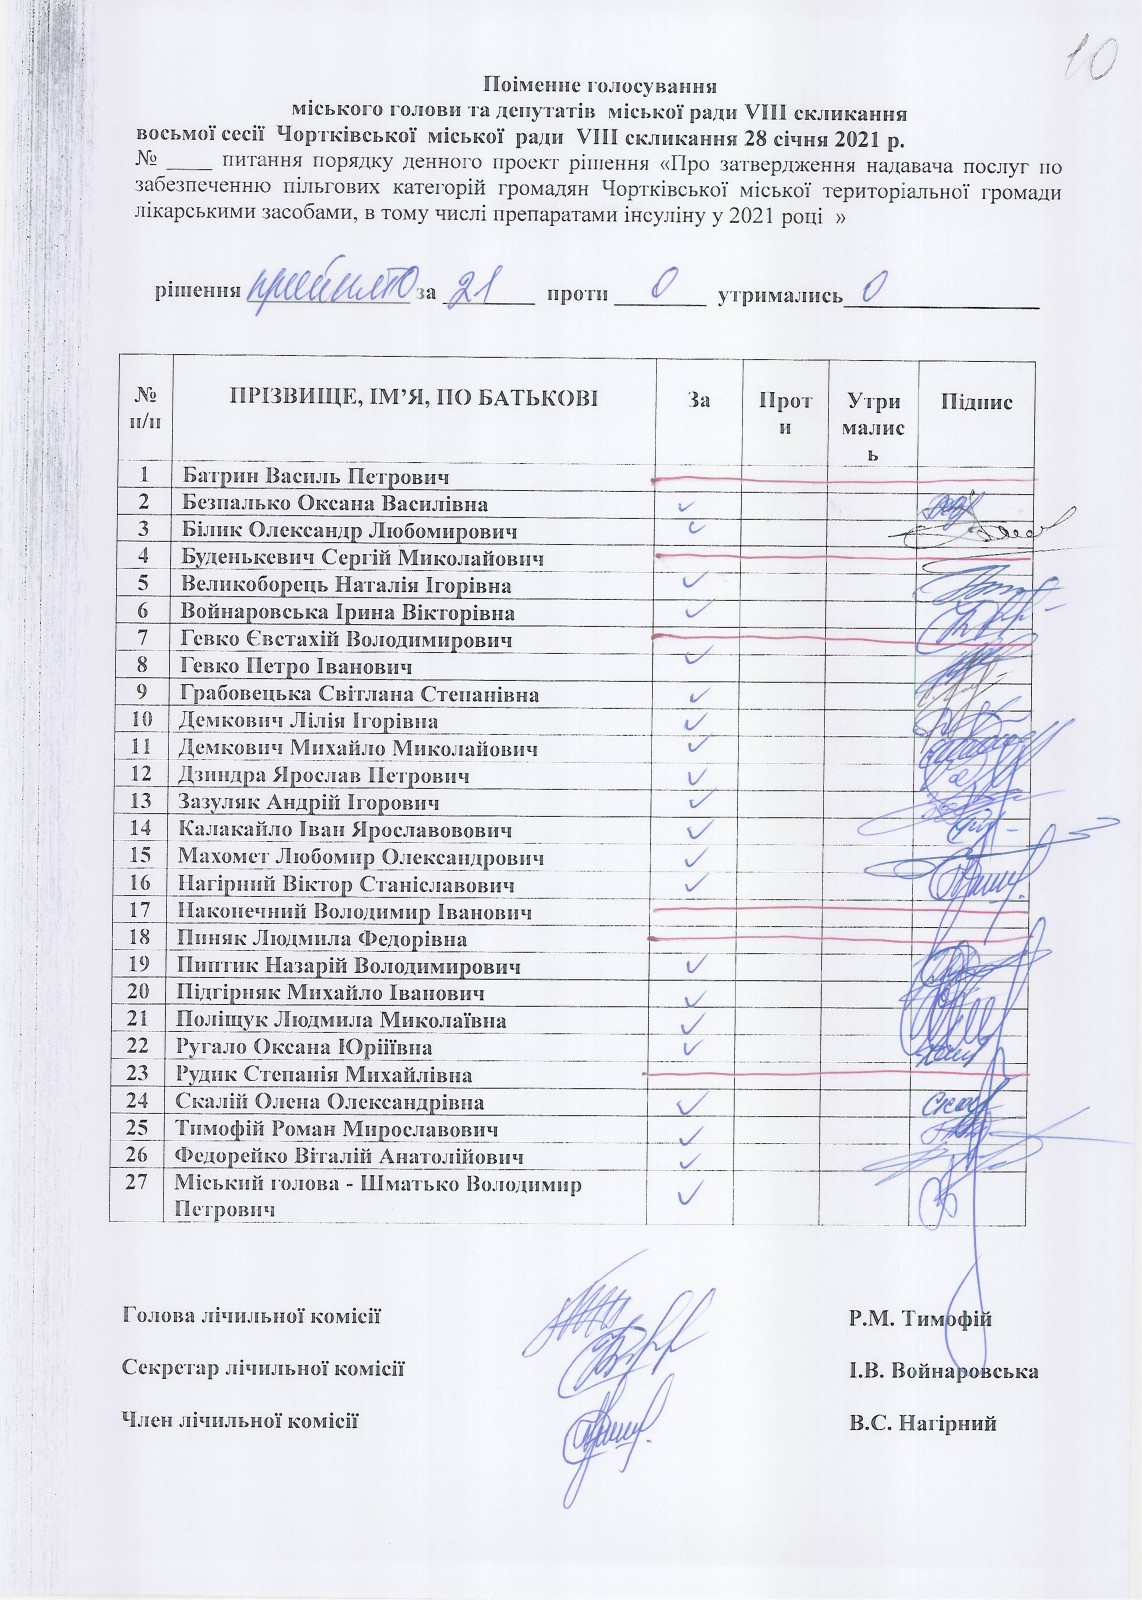 10
Поіменне голосування
міського голови та депутатів міської ради VIII скликання
восьмої сесії Чортківської міської ради VIII скликання 28 січня 2021 р.
№ ____ питання порядку денного проект рішення «Про затвердження надавача послуг по
забезпеченню пільгових категорій громадян Чортківської міської територіальної громади
лікарськими засобами, в тому числі препаратами інсуліну у 2021 році »
рішення прийнято за 21 проти 0 утримались 0
№ п/п ПРІЗВИЩЕ, ІМ’Я, ПО БАТЬКОВІ За Проти Утрималась Підпис
1 Батрин Василь Петрович
2 Безпалько Оксана Василівна
3 Білик Олександр Любомирович
4 Буденькевич Сергій Миколайович
5 Великоборець Наталія Ігорівна
6 Войнаровська Ірина Вікторівна
7 Гевко Євстахій Володимирович
8 Гевко Петро Іванович
9 Грабовецька Світлана Степанівна
10 Демкович Лілія Ігорівна
11 Демкович Михайло Миколайович
12 Дзиндра Ярослав Петрович
13 Зазуляк Андрій Ігорович
14 Калакайло Іван Ярославовович
15 Махомет Любомир Олександрович
16 Нагірний Віктор Станіславович
17 Наконечний Володимир Іванович
18 Пиняк Людмила Федорівна
19 Пиптик Назарій Володимирович
20 Підгірняк Михайло Іванович
21 Поліщук Людмила Миколаївна
22 Ругало Оксана Юріїївна
23 Рудик Степанія Михайлівна
24 Скалій Олена Олександрівна
25 Тимофій Роман Мирославович
26 Федорейко Віталій Анатолійович
27 Міський голова - Шматько Володимир
Петрович
Голова лічильної комісії Р.М. Тимофій
Секретар лічильної комісії І.В. Войнаровська
Член лічильної комісії В.С. Нагірний